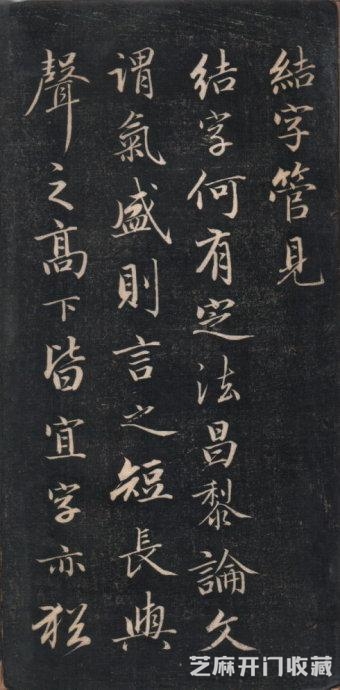 結字管見
結字何有定法昌黎論文
謂氣盛則言之短長與
聲之高下皆宜字亦猶
芝麻开门收藏